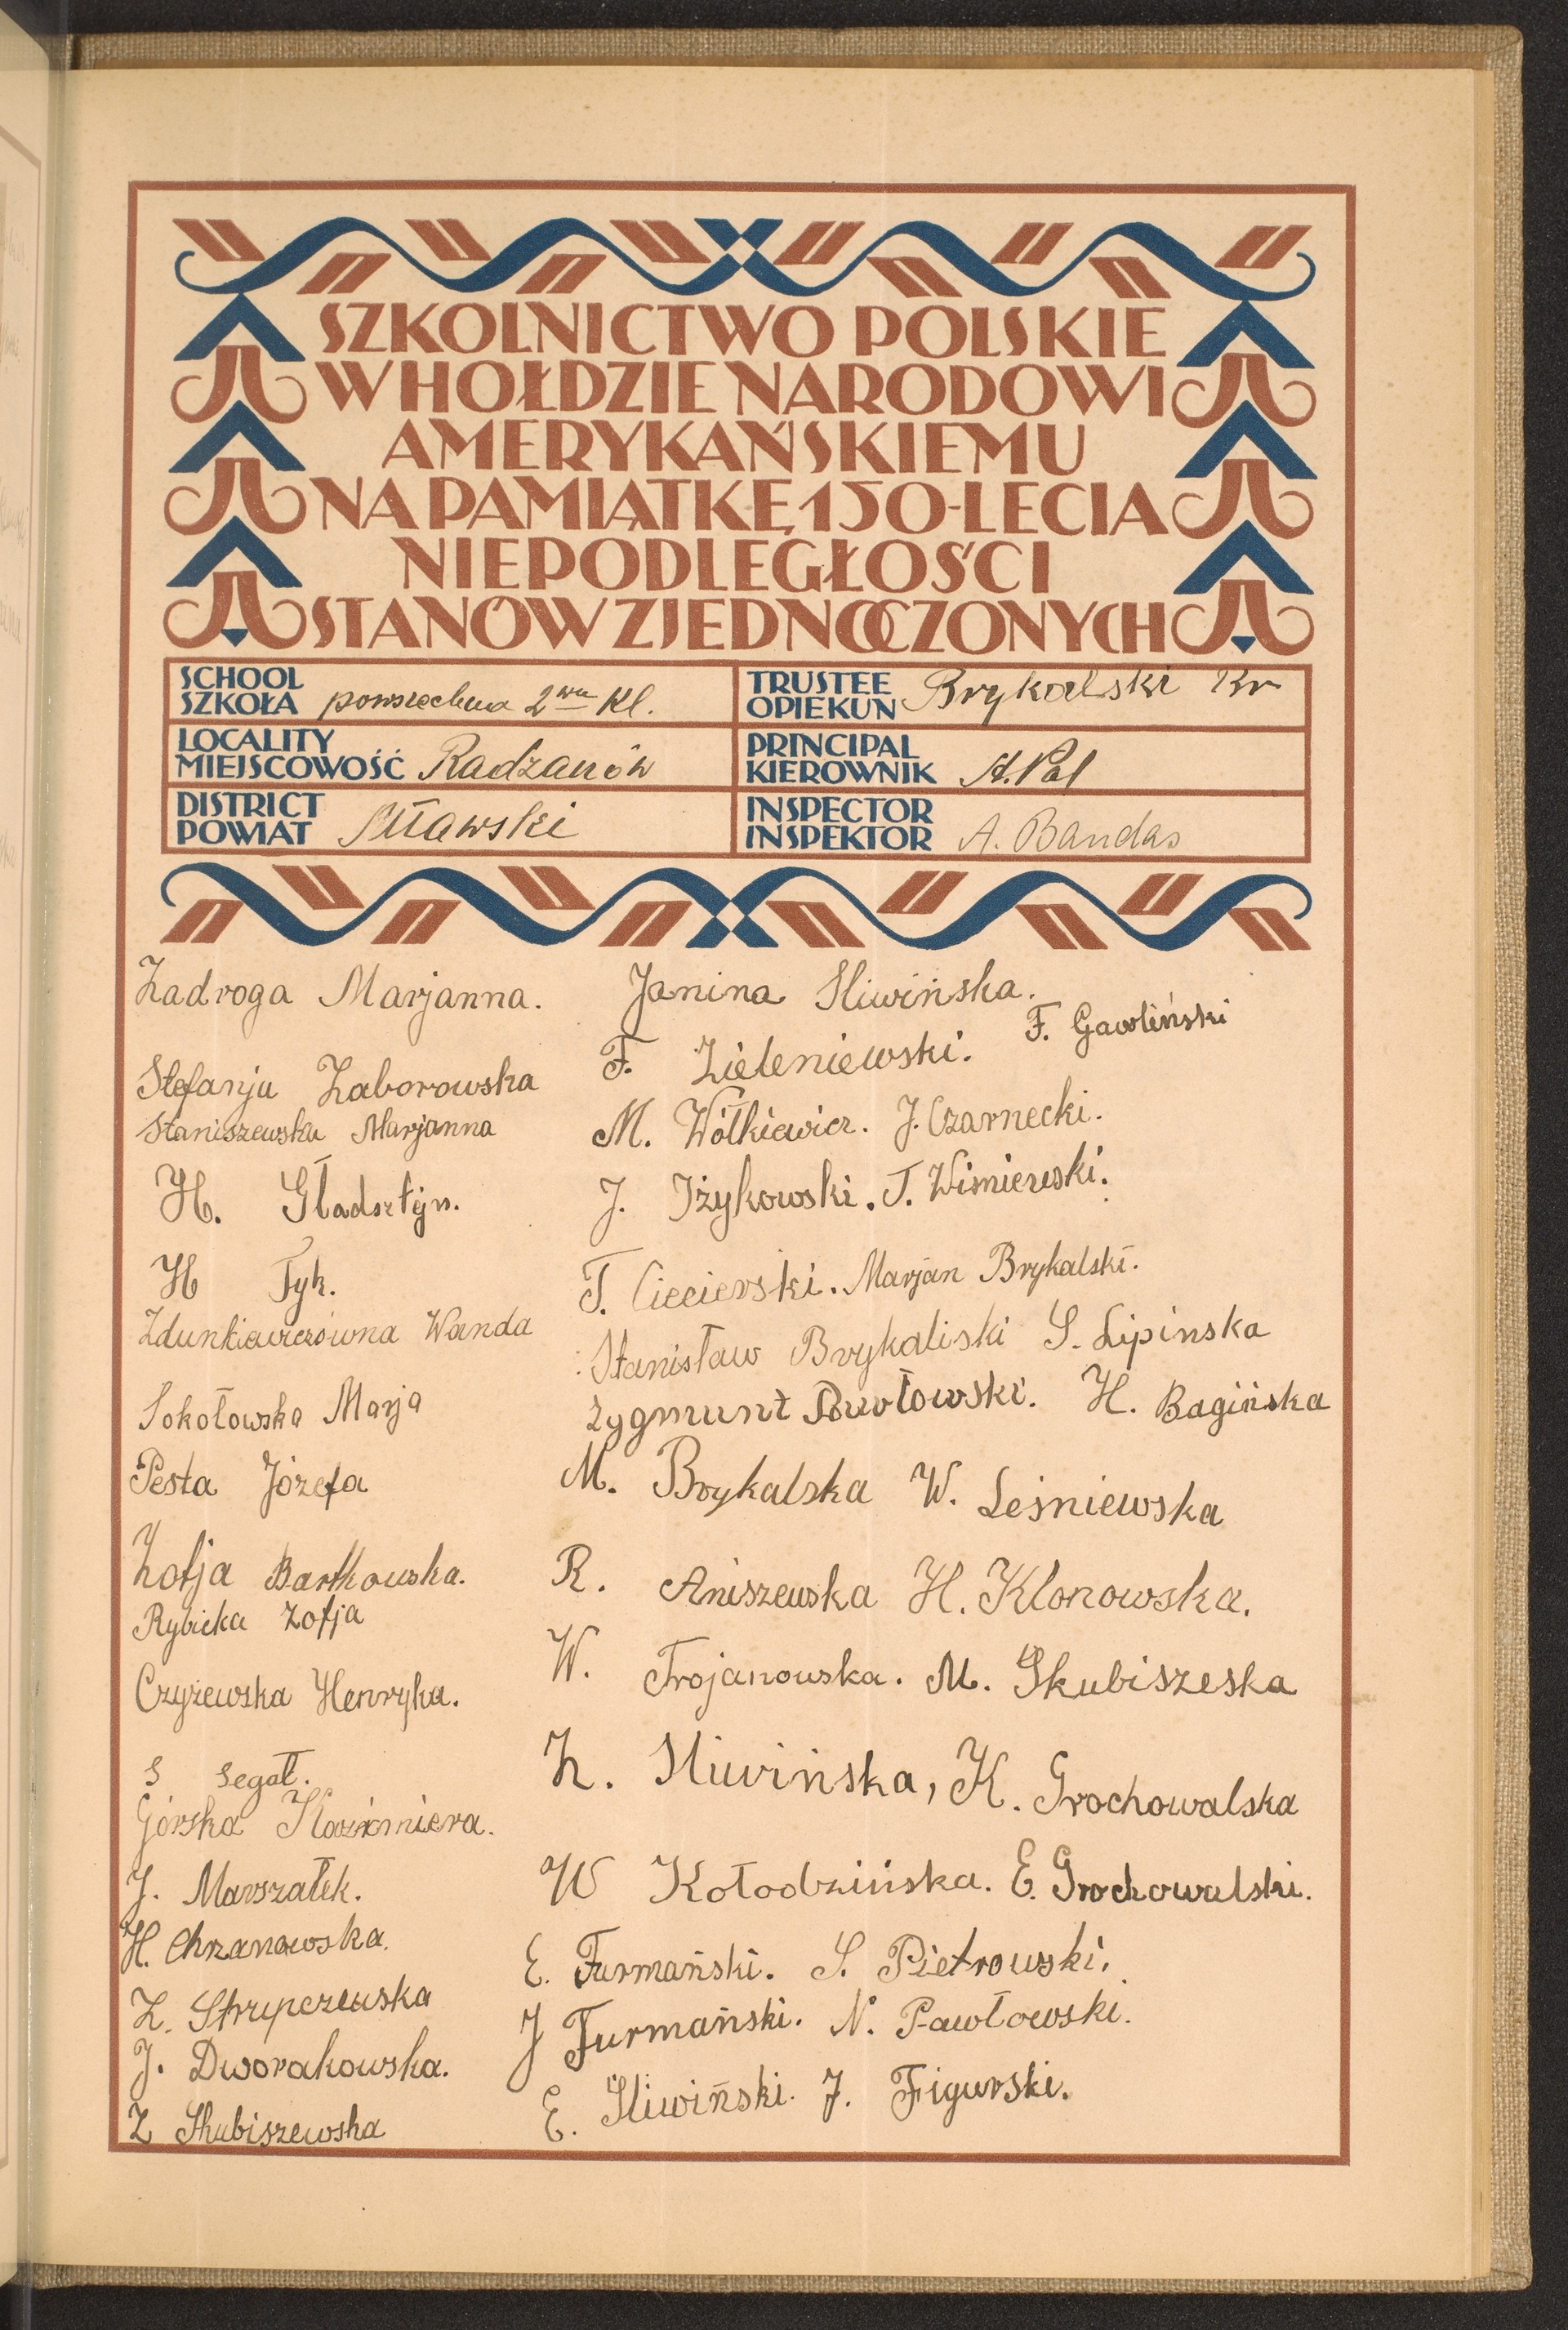 SZKOLNICTWO POLSKIE
W HOŁDZIE NARODOWI
AMERYKAŃSKIEMU
NA PAMIĄTKĘ 150-LECIA
NIEPODLEGŁOŚCI
STANÓW ZJEDNOCZONYCH
SCHOOL
SZKOŁA powszechna 2 wu Kl.
TRUSTEE
OPIEKUN Brykalski Kr
LOCALITY
MIEJSCOWOŚĆ Radzanów
PRINCIPAL
KIEROWNIK A. Pol
DISTRICT
POWIAT Mławski
INSPECTOR
INSPEKTOR A. Bandas
Zadroga Marjanna.
Stefanja Zaborowska
Staniszewska Marjanna
H. Gładsztyn.
H Tyk.
Zdunkiewiczówna Wanda
Sokołowska Marja
Pesta Józefa
Zofja Bartkowska.
Rybicka Zofja
Czyżewska Henryka.
S Segał.
Górska Kazimiera.
J. Marszałek.
H. Chrzanowska.
Z. Strupczewska
J. Dworakowska.
Z Skubiszewska
Janina Sliwińska.
F. Zieleniewski. F. Gawliński
M. Wólkiewicz. J. Czarnecki.
J. Iżykowski. T. Wisniewski.
T. Ciecierski. Marjan Brykalski.
Stanisław Brykaliski S. Lipinska
Zygmunt Pawłowski. H. Bagińska
M. Brykalska W. Leśniewska
R. Aniszewska H. Klonowska.
W. Trojanowska. M. Skubiszeska
Z. Sliwińska, K. Grochowalska
W Kołodzińska. E. Grochowalski.
E. Furmański. S. Pietrowski.
J Furmański. N. Pawłowski.
E. Sliwiński. J. Figurski.